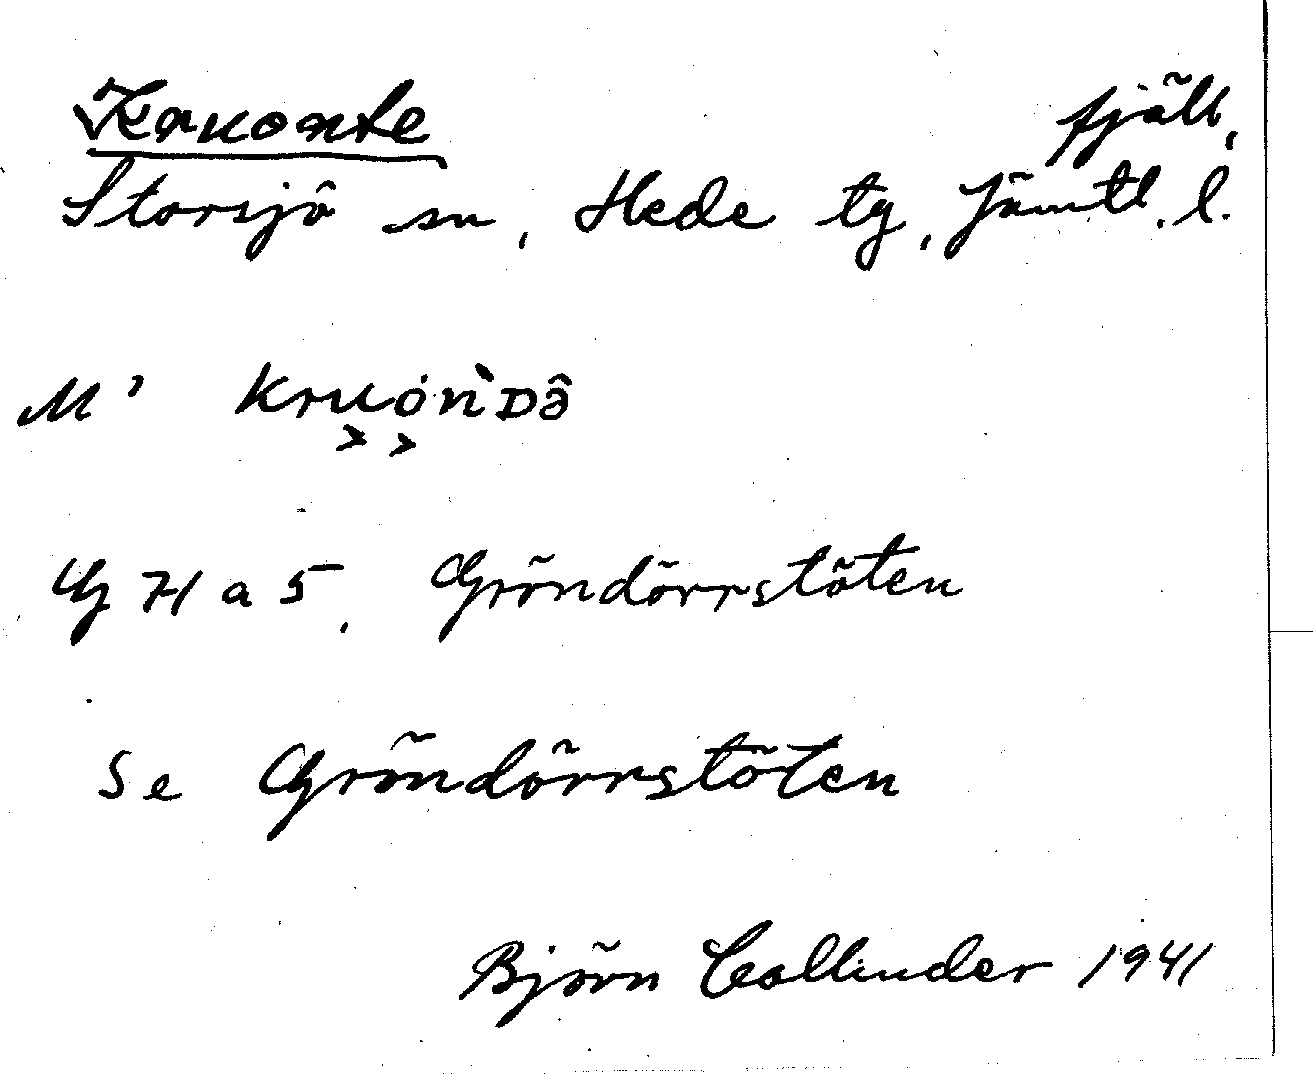 Kruonte fjäll,
Storsjö sn, Hede tg, Jämtl. l.
M' kruȯǹDə̂
G 71 a 5, Gröndörrstöten
Se Gröndörrstöten
Björn Collinder 1941